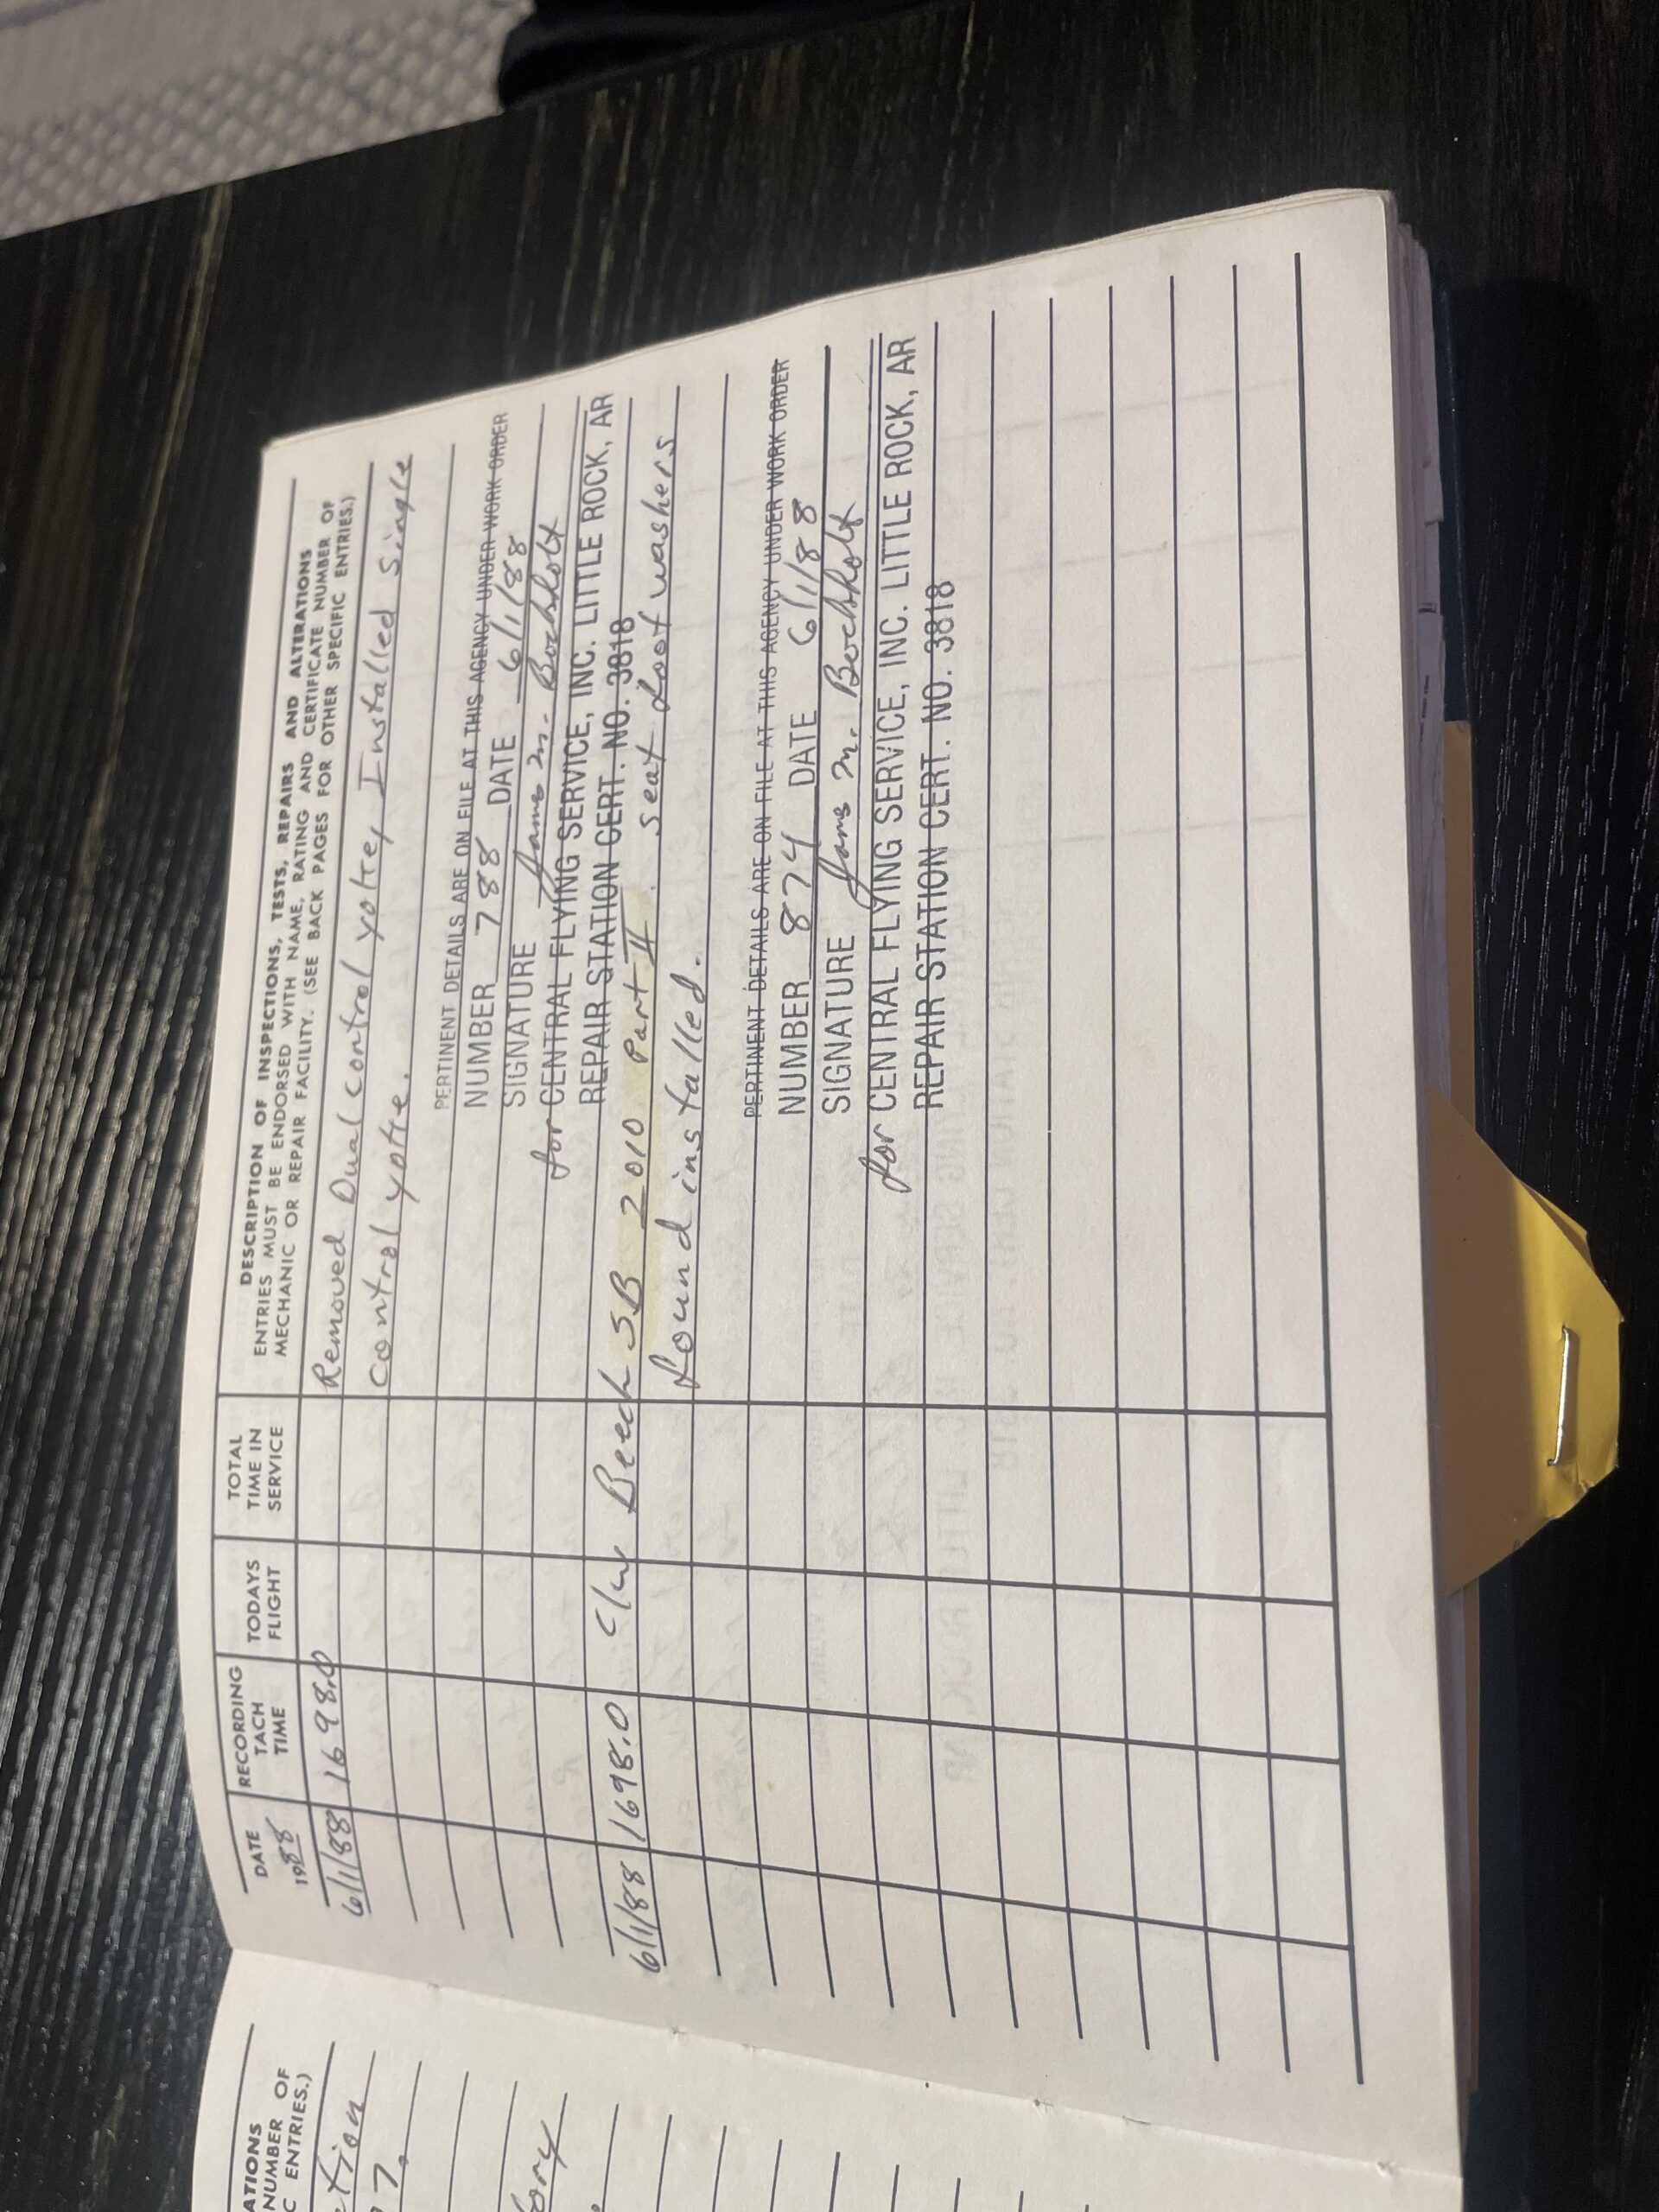 ATIONS
NUMBER OF
C ENTRIES.)
ction
7.
ory
DATE
1988
RECORDING
TACH
TIME
TODAYS
FLIGHT
TOTAL
TIME IN
SERVICE
DESCRIPTION OF INSPECTIONS, TESTS, REPAIRS AND ALTERATIONS
ENTRIES MUST BE ENDORSED WITH NAME, RATING AND CERTIFICATE NUMBER OF
MECHANIC OR REPAIR FACILITY. (SEE BACK PAGES FOR OTHER SPECIFIC ENTRIES.)
6/1/88 1698.0 Removed Dual control yoke, Installed single
control yoke.
PERTINENT DETAILS ARE ON FILE AT THIS AGENCY UNDER WORK ORDER
NUMBER 788 DATE 6/1/88
SIGNATURE James M.
for CENTRAL FLYING SERVICE, INC. LITTLE ROCK, AR
REPAIR STATION CERT. NO. 3818
6/1/88 1698.0 C/w Beech SB 2010 Part II. seat foot washers
found installed.
PERTINENT DETAILS ARE ON FILE AT THIS AGENCY UNDER WORK ORDER
NUMBER 874 DATE 6/1/88
SIGNATURE James M.
for CENTRAL FLYING SERVICE, INC. LITTLE ROCK, AR
REPAIR STATION CERT. NO. 3818